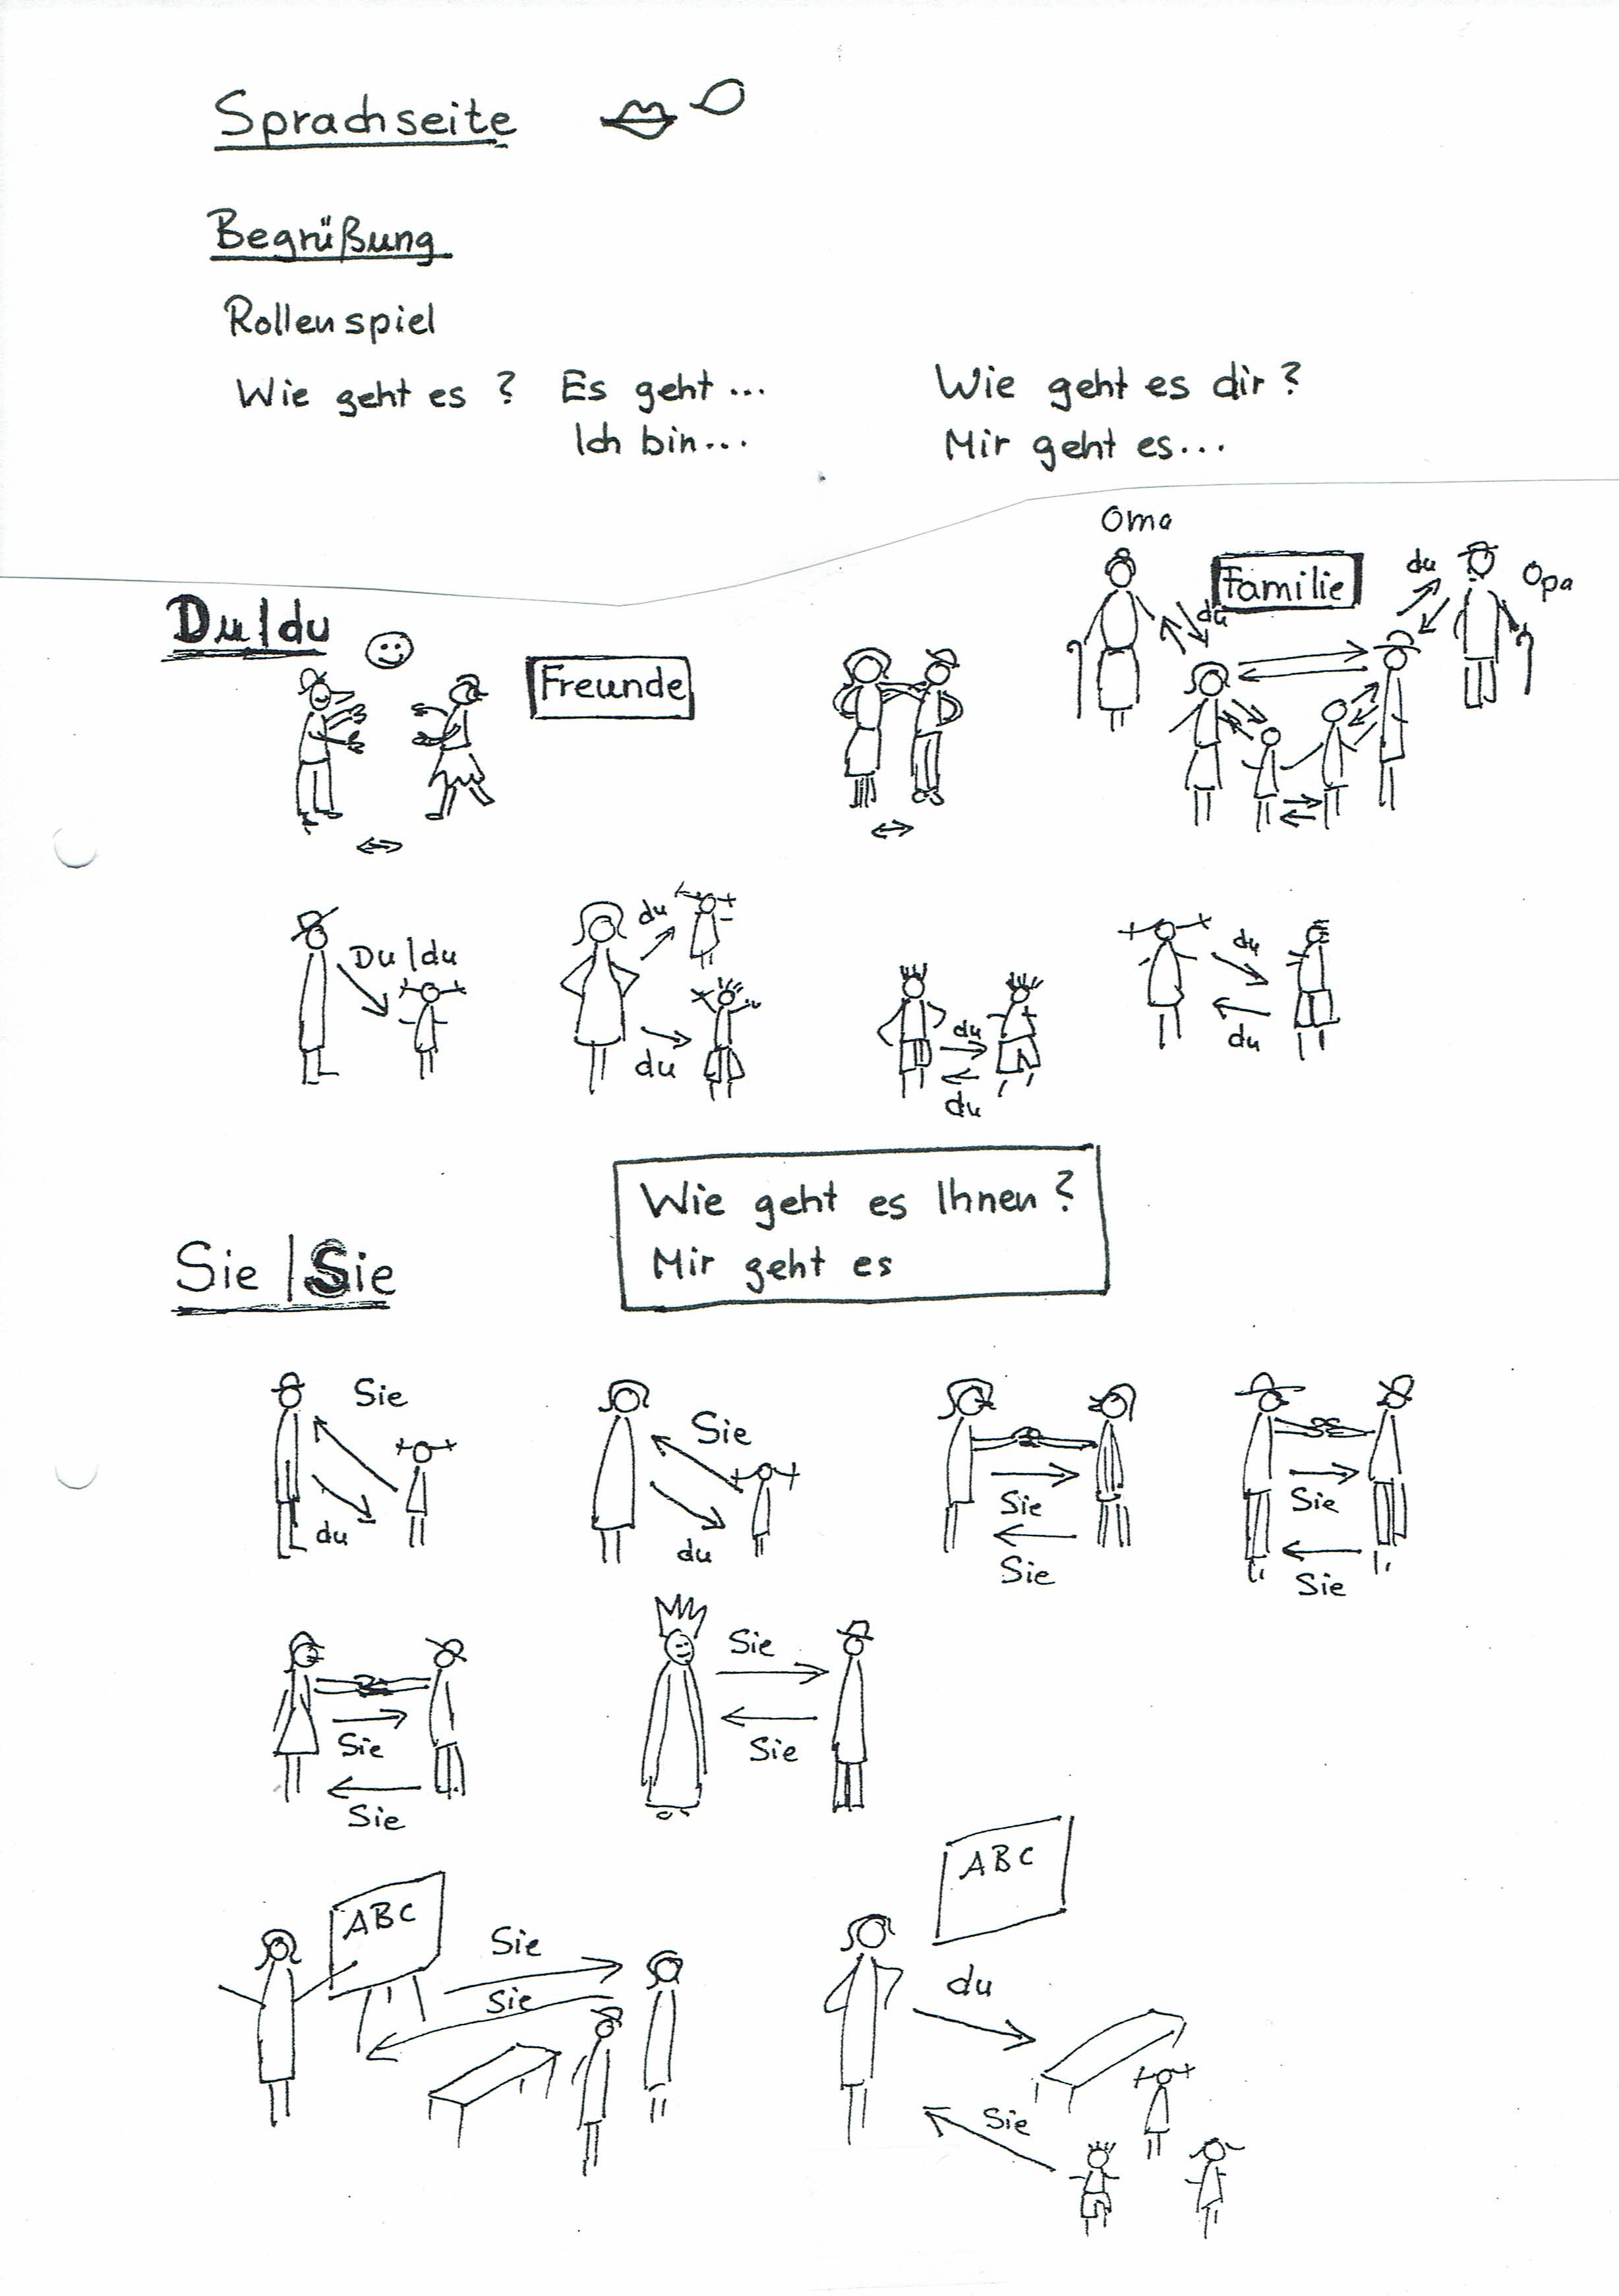 Sprachseite
Begrüßung
Rollenspiel
Wie geht es ? Es geht ...
Ich bin...
Wie geht es dir ?
Mir geht es...
Oma
Familie
du
Opa
du
Du/du
Freunde
Du/du
du
du
du
du
du
du
Wie geht es Ihnen ?
Mir geht es
Sie / Sie
Sie
du
Sie
du
Sie
Sie
Sie
Sie
Sie
Sie
Sie
Sie
ABC
Sie
Sie
ABC
du
Sie